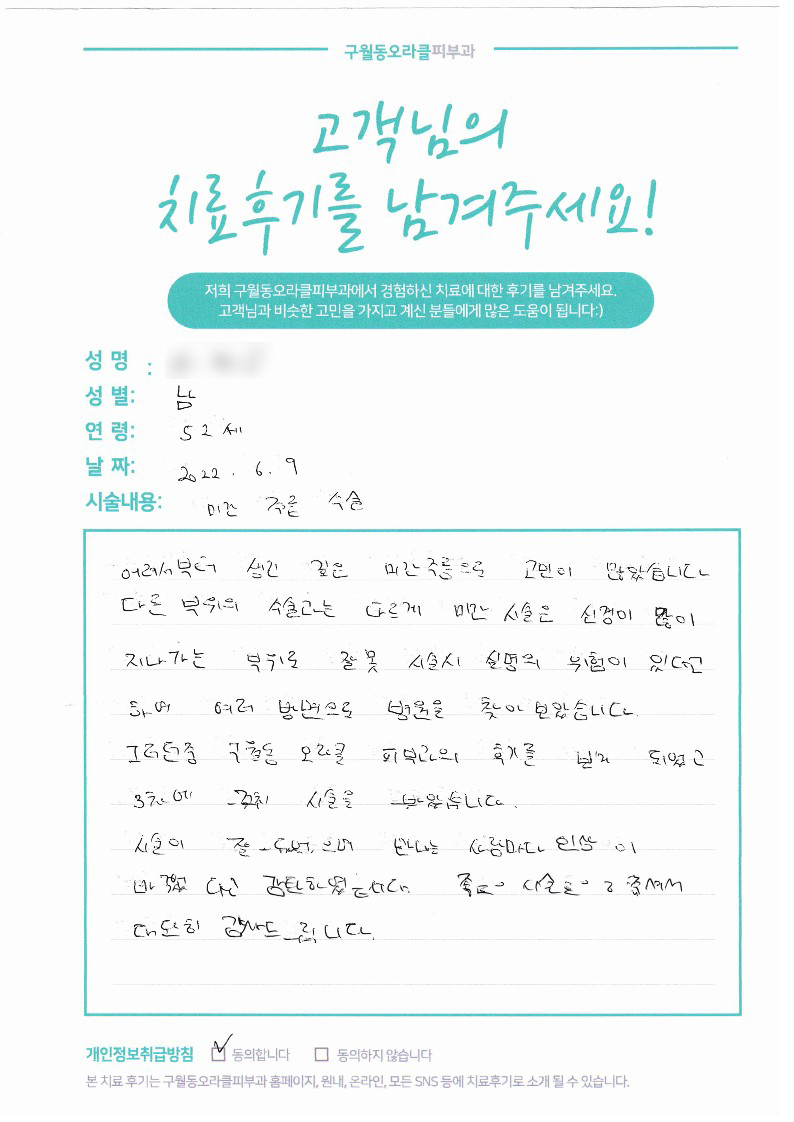 구월동오라클피부과
고객님의
치료후기를 남겨주세요!
저희 구월동오라클피부과에서 경험하신 치료에 대한 후기를 남겨주세요.
고객님과 비슷한 고민을 가지고 계신 분들에게 많은 도움이 됩니다:)
성 명 :
성 별: 남
연 령: 52세
날 짜: 2022. 6. 9
시술내용: 미간 주름 수술
어려서부터 생긴 깊은 미간주름으로 고민이 많았습니다
다른 부위의 수술과는 다르게 미간 시술은 신경이 많이
지나가는 부위로 잘못 시술시 실명의 위험이 있다고
하여 여러 방면으로 병원을 찾아 보았습니다.
그러던중 구월동 오라클 피부과의 후기를 보게 되었고
3차에 시술을 받았습니다.
시술이 잘 만나는 사람마다 인상이
바꼈다고 감탄하였습니다. 좋은 시술로 해주셔서
대단히 감사드립니다.
개인정보취급방침 ☑ 동의합니다 ☐ 동의하지 않습니다
본 치료 후기는 구월동오라클피부과 홈페이지, 원내, 온라인, 모든 SNS 등에 치료후기로 소개 될 수 있습니다.